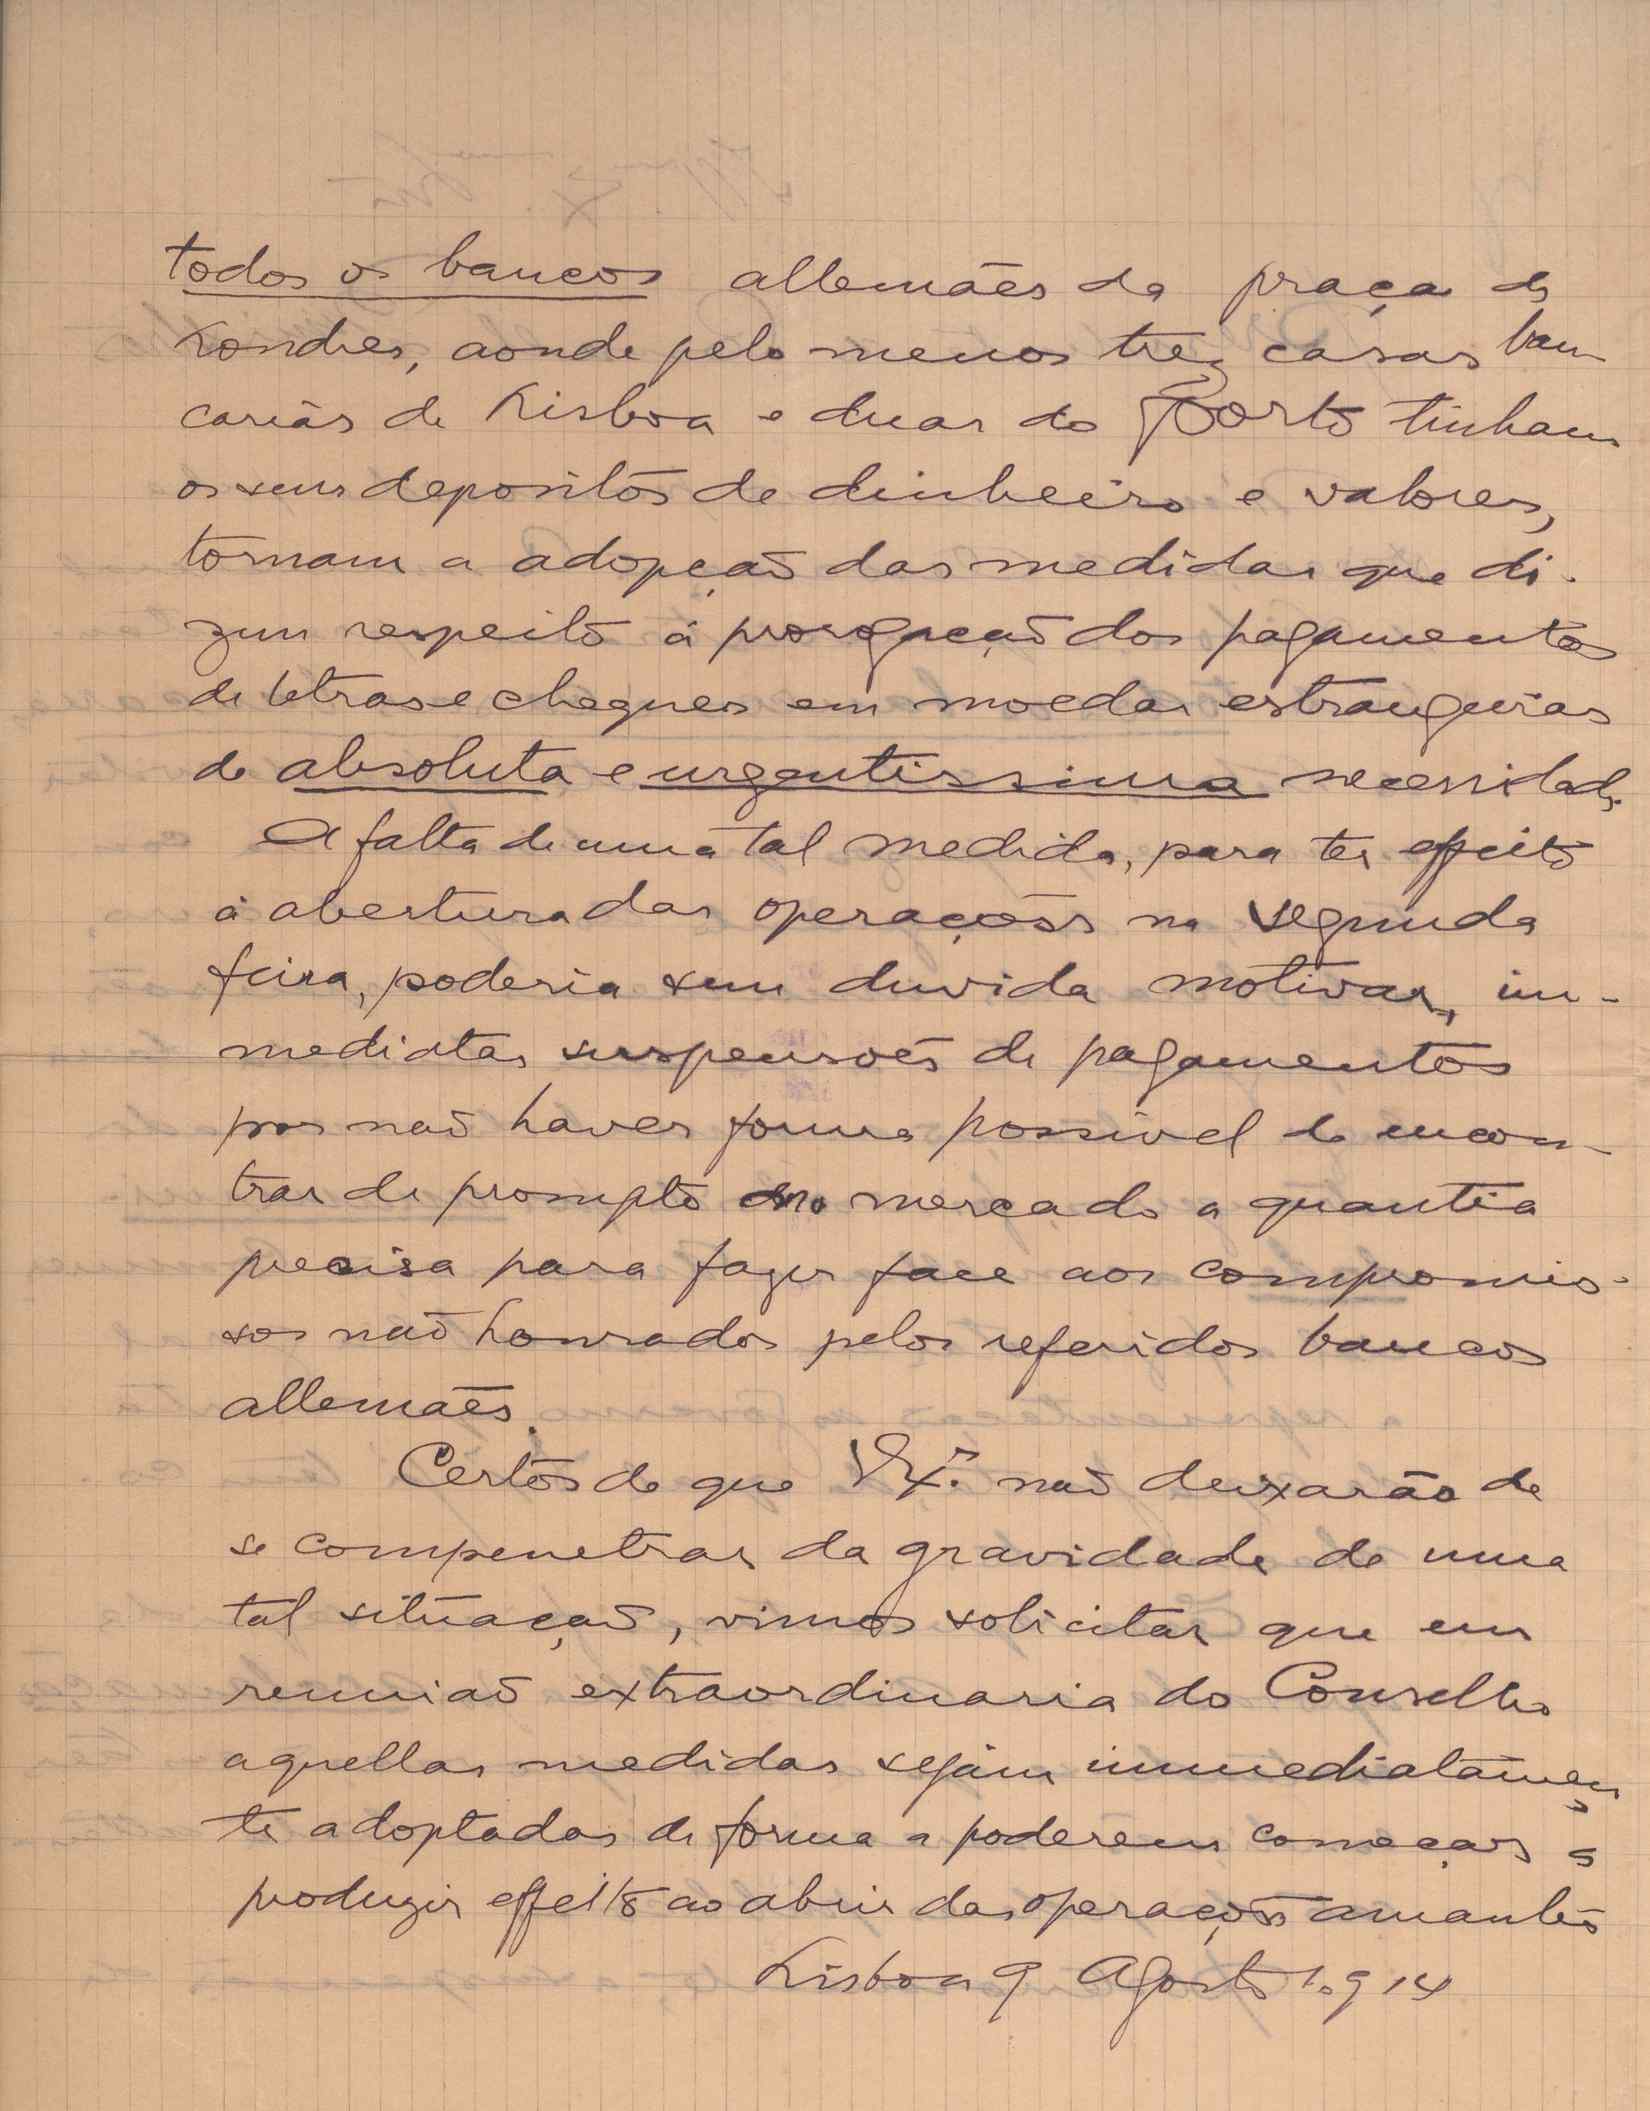 todos os bancos allemães da praça de
Londres, aonde pelo menos trez casas ban
carias de Lisboa e duas do Porto tinham
os seus depositos de dinheiro e valores,
tornam a adopção das medidas que di-
zem respeito á prorogação dos pagamentos
de letras e cheques em moedas estrangeiras
de absoluta e urgentissima necessidade.
A falta de uma tal medida, para ter effeito
á abertura das operações na segunda
feira, poderia sem duvida motivar, im-
mediatas suspensões de pagamentos
por não haver forma possivel de encon-
trar de prompto no mercado a quantia
precisa para fazer face aos compromis-
sos não honrados pelos referidos bancos
allemães.
Certos de que V. Ex.as não deixarão de
se compenetrar da gravidade de uma
tal situação, vimos solicitar que em
reunião extraordinaria do Conselho
aquellas medidas sejam immediatamen
te adoptadas de forma a poderem começar a
produzir effeito ao abrir das operações amanhã
Lisboa 9 Agosto 1914